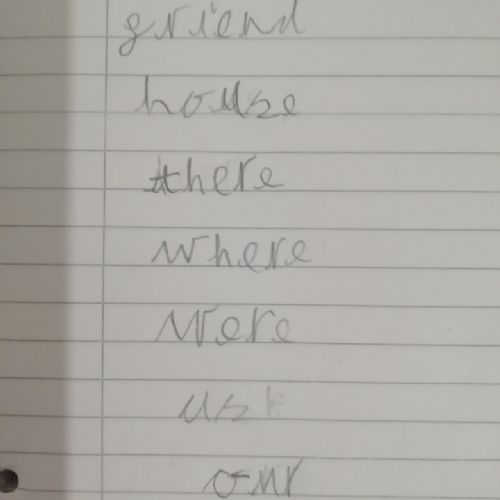 friend
house
there
where
were
us
our